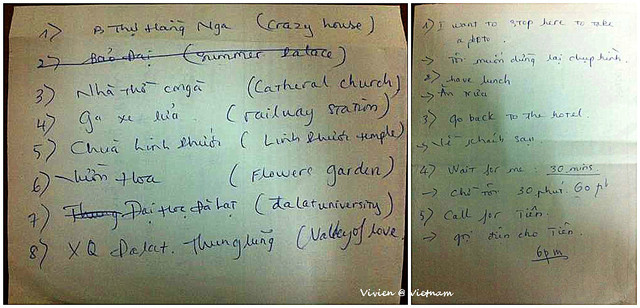 1) B Thự Hằng Nga (Crazy house)
2) Bảo Đại (Summer Palace)
3) Nhà thờ congà (Catheral church)
4) Ga xe lửa (railway station)
5) Chùa Linh Phước (Linh Phước temple)
6) Vườn Hoa (Flowers garden)
7) Đại Học Đà Lạt (dalat university)
8) XQ Dalat. Thung lũng (Valley of love
1) I want to stop here to take
a photo.
→ Tôi muốn dừng lại chụp hình.
2) have lunch
→ Ăn trưa
3) go back to the hotel.
→ Về khách sạn
4) Wait for me. 30 mins
→ Chờ tôi 30 phút. 60 ph
5) Call for Tiên.
→ gọi điện cho Tiên
6 p.m
Vivien @ Vietnam